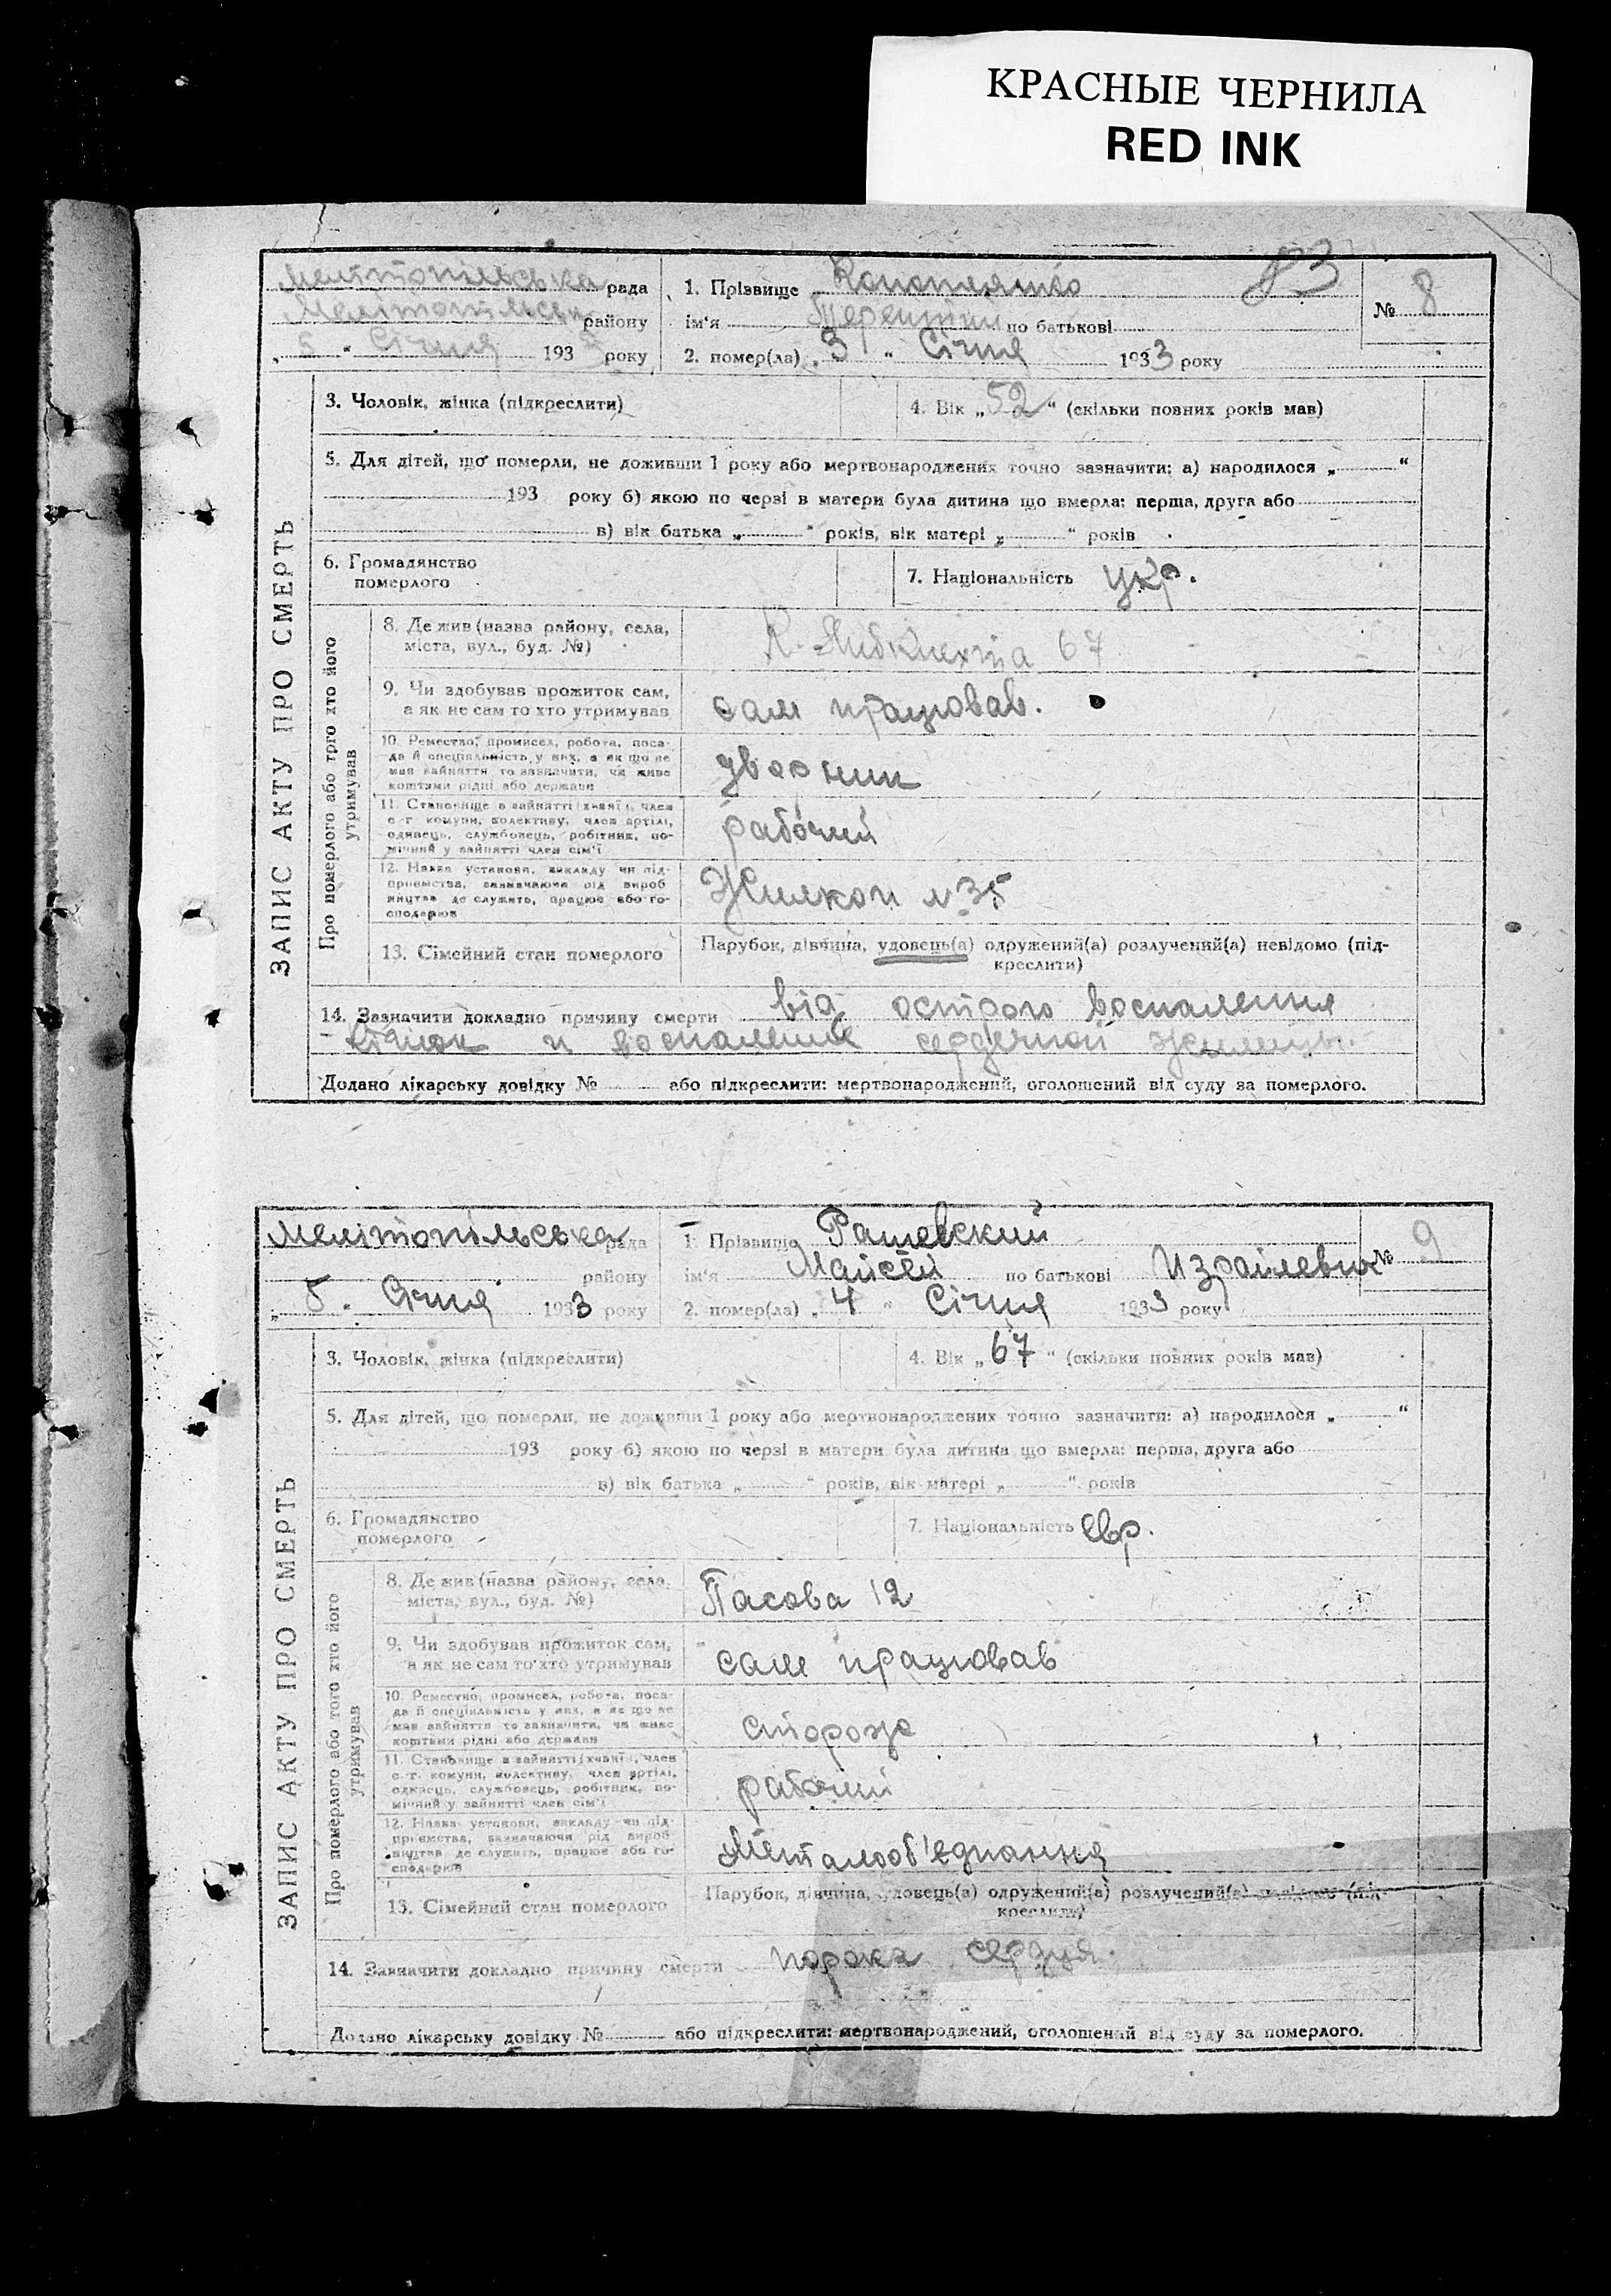 КРАСНЫЕ ЧЕРНИЛА
RED INK
83
Мелітопільська рада
району
„ 5 “ Січня 193 року
1. Прізвище Конопляшко
№ 8
ім'я Терентий по батькові
2. помер(ла) „ 3 “ Січня 1933 року
ЗАПИС АКТУ ПРО СМЕРТЬ
3. Чоловік, жінка (підкреслити)
4. Вік „ 52 “ (скільки повних років мав)
5. Для дітей, що померли, не доживши 1 року або мертвонароджених точно зазначити: а) народилося „ “
193 року б) якою по черзі в матери була дитина що вмерла: перша, друга або
в) вік батька „ “ років, вік матері „ “ років
6. Громадянство
померлого
7. Національність укр.
Про померлого або того хто його
утримував
8. Де жив (назва району, села,
міста, вул., буд. №)
К. Лібкнехта 67
9. Чи здобував прожиток сам,
а як не сам то хто утримував
сам працював.
10. Ремество, промисел, робота, поса-
да й спеціяльність у них, а як що не
мав зайняття то зазначити, чи живе
коштами рідні або держави
дворник
11. Становище в зайнятті (хазяїн, член
с-г комуни, колективу, член артілі,
одинець, службовець, робітник, по-
мічний у зайнятті член сім'ї
рабочий
12. Назва установи, викладу чи під-
приємства, зазначаючи рід вироб
ництва де служить, працює або го-
сподарює
Жилкоп №35
13. Сімейний стан померлого
Парубок, дівчина, удовець(а) одружений(а) розлучений(а) невідомо (під-
креслити)
14. Зазначити докладно причину смерти від острого воспаления
и воспаление сердечной
Додано лікарську довідку № або підкреслити: мертвонароджений, оголошений від суду за померлого.
Мелітопільська рада
району
„ 5 “ Січня 1933 року
1. Прізвище Рашевский
№ 9
ім'я Майсей по батькові Израілевич
2. помер(ла) „ 4 “ Січня 1933 року
ЗАПИС АКТУ ПРО СМЕРТЬ
3. Чоловік, жінка (підкреслити)
4. Вік „ 67 “ (скільки повних років мав)
5. Для дітей, що померли, не доживши 1 року або мертвонароджених точно зазначити: а) народилося „ “
193 року б) якою по черзі в матери була дитина що вмерла: перша, друга або
в) вік батька „ “ років, вік матері „ “ років
6. Громадянство
померлого
7. Національність євр.
Про померлого або того хто його
утримував
8. Де жив (назва району, села,
міста, вул., буд. №)
Пасова 12
9. Чи здобував прожиток сам,
а як не сам то хто утримував
сам працював
10. Ремество, промисел, робота, поса-
да й спеціяльність у них, а як що не
мав зайняття то зазначити, чи живе
коштами рідні або держави
сторож
11. Становище в зайнятті (хазяїн, член
с-г. комуни, колективу, член артілі,
одинець, службовець, робітник, по-
мічний у зайнятті член сім'ї
рабочий
12. Назва установи, викладу чи під-
приємства, зазначаючи рід вироб
ництва де служить, працює або го-
сподарює
Металооб'єднання
13. Сімейний стан померлого
Парубок, дівчина, удовець(а) одружений(а) розлучений(а) невідомо (під-
креслити)
14. Зазначити докладно причину смерти порока сердця.
Додано лікарську довідку № або підкреслити: мертвонароджений, оголошений від суду за померлого.